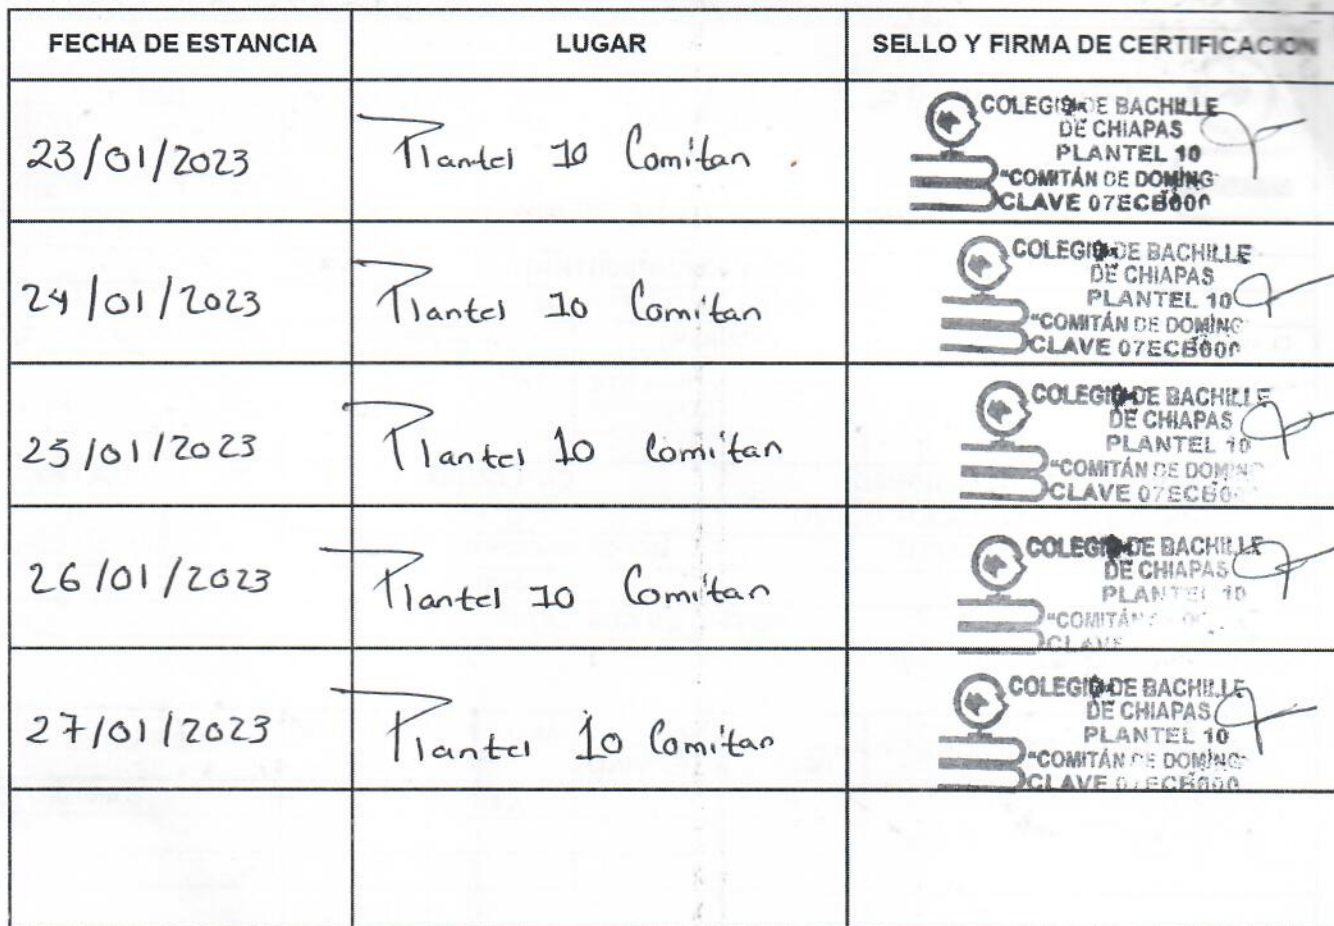 FECHA DE ESTANCIA LUGAR SELLO Y FIRMA DE CERTIFICACION
23/01/2023 Plantel 10 Comitan
COLEGIO DE BACHILLE
DE CHIAPAS
PLANTEL 10
"COMITÁN DE DOMÍNG
CLAVE 07ECB000
24/01/2023 Plantel 10 Comitan
COLEGIO DE BACHILLE
DE CHIAPAS
PLANTEL 10
"COMITÁN DE DOMÍNG
CLAVE 07ECB000
25/01/2023 Plantel 10 Comitan
COLEGIO DE BACHILLE
DE CHIAPAS
PLANTEL 10
"COMITÁN DE DOMÍNG
CLAVE 07ECB0
26/01/2023 Plantel 10 Comitan
COLEGIO DE BACHILLE
DE CHIAPAS
PLANTEL 10
"COMITÁN
CLAVE
27/01/2023 Plantel 10 Comitan
COLEGIO DE BACHILLE
DE CHIAPAS
PLANTEL 10
"COMITÁN DE DOMÍNG
CLAVE 07ECB000